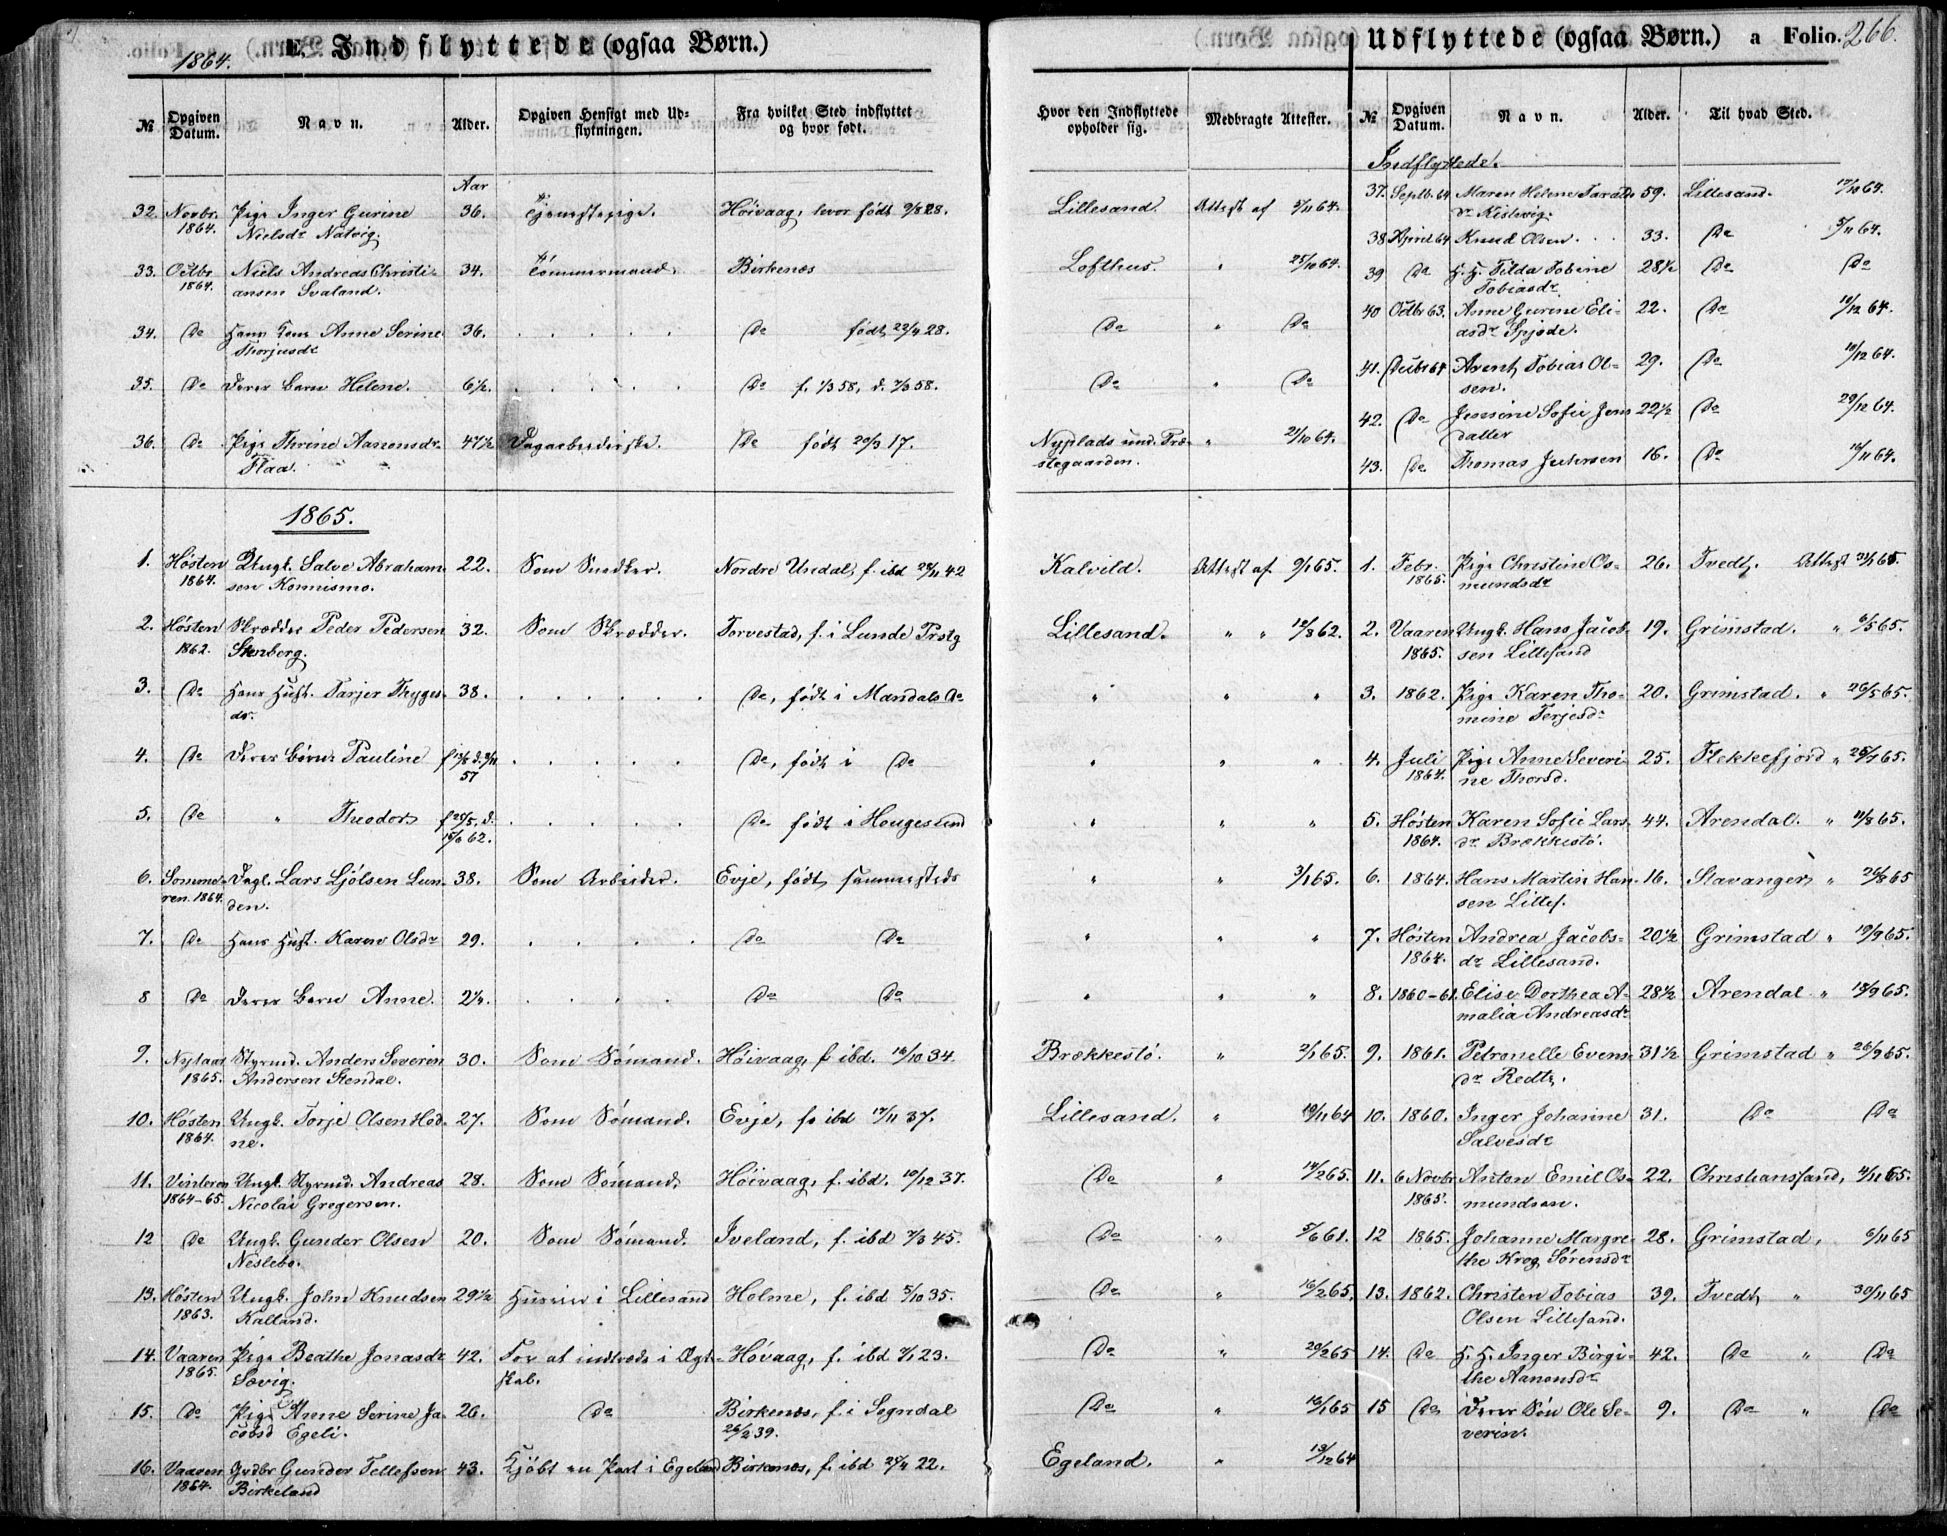 1864.
E. Indflyttede (ogsaa Børn.)
Udflyttede (ogsaa Børn.) a Folio. 266.
№ Opgiven Datum. Navn. Alder. Opgiven Hensigt med Udflytningen. Fra hvilket Sted indflyttet og hvor født. Hvor den Indflyttede opholder sig. Medbragte Attester.
№ Opgiven Datum. Navn. Alder. Til hvad Sted.
Indflyttede.
Aar
32. Novbr. 1864. Pige Inger Gurine Nielsdr Natvig. 36. Tjenestepige. Høivaag, hvor født 9/8 28. Lillesand. Attest af 5/11 64.
33. Octbr 1864. Niels Andreas Christiansen Svaland. 34. Tømmermand. Birkenæs Lofthus. " 25/10 64.
34. Do Hans Kone Anne Serine Thorjusdr 36. Do født 22/4 28. Do " Do
35. Do Deres Barn Helene. 6½. Do f. 1/3 58, d. 7/3 58. Do " Do
36. Do Pige Thrine Aanonsdr Flaa. 47½ Dagarbeiderske. Do født 20/3 17. Nyplads und. Præstegaarden. " 21/10 64.
37. Septb. 64 Maren Helene Taraldsdr Kistevig. 59. Lillesand. 17/10 64.
38 April 64 Knud Olsen. 33. Do 5/11 64.
39 Do H. H. Tilda Tobine Tobiasdr 28½ Do Do
40 Octbr 63. Anne Gurine Eliasdr Spjode. 22. Do 10/12 64.
41. Decbr 64 Arent Tobias Olsen. 29. Do 10/12 64.
42. Do Jensine Sofie Jensdatter 22½ Do 29/12 64.
43. Do Thomas Julersen 16. Do 16/11 64.
1865.
1. Høsten 1864. Ungk. Salve Abrahamsen Konnismo. 22. Som Snedker. Nordre Undal, f. ibd 28/11 42 Kalvild. Attest af 9/1 65.
2. Høsten 1862. Skrædder Peder Pedersen Stenberg. 32. Som Skrædder. Torvestad, f. i Lunde Prstg Lillesand. " " 12/3 62.
3. Do Hans Hust. Tarjer Thygesdr. 38. Do, født i Mandals Do " " "
4. Do Deres Børn: Pauline f 13/6 d. 9/11 57 Do, født i Do " " "
5. Do " Theodor f 25/5. d. 15/6 62. Do født i Hougesund " " "
6. Sommeren. 1864. Dagl. Lars Ljølsen Lunden. 38. Som Arbeider. Evje, født sammesteds " " 3/1 65.
7. Do Hans Hust. Karen Olsdr 29. Do Do " " "
8 Do Deres Barn Anne. 2¼. Do Do " " "
9. Nytaar 1865. Styrmd. Anders Severin Andersen Stendal. 30. Som Sømand. Høivaag, f ibd. 16/10 34. Brækkestø. " 2/1 65.
10. Høsten 1864. Ungk. Torje Olsen Hodne. 27. Som Sømand. Evje, f. ibd 17/11 37. Lillesand. " 19/11 64
11. Vinteren 1864-65. Ungk. Styrmd. Andreas Nicolai Gregersen. 28. Som Sømand. Høivaag, f. ibd. 10/12 37. Do " 14/2 65.
12 Do Ungk. Gunder Olsen Neslebo. 20. Som Sømand. Iveland, f. ibd 7/3 45. Do " 5/6 61.
13. Høsten 1863. Ungk. John Knudsen Kalland. 29½ Huseier i Lillesand Holme, f. ibd 5/10 35. Do " 16/2 65.
14. Vaaren 1865. Pige Beathe Jonasdr Sævig. 42. For at indtræde i Ægteskab. Høvaag, f. ibd 7/1 23. Do " 20/2 65
15. Do Pige Anne Serine Jacobsd Egeli. 26. Do Birkenæs, f. i Sogndal 26/2 39. Do " 10/1 65
16. Vaaren 1864. Grdbr Gunder Tellefsen Birkeland 43. Kjøbt en Part i Egeland Birkenæs, f. ibd 27/4 22. Egeland. " 13/12 64
1. Febr. 1865. Pige Christine Osmundsdr 26. Tvedt. Attest 31/1 65.
2. Vaaren 1865. Ungk. Hans Jacobsen Lillesand 19. Grimstad. " 6/5 65.
3. 1862. Pige Karen Thomine Terjesdr 20. Grimstad. " 26/5 65.
4. Juli 1864. Pige Anne Severine Thorsd. 25. Flekkefjord " 25/7 65.
5. Høsten 1864. Karen Sofie Larsdr Brækkestø. 44. Arendal. " 11/8 65.
6. 1864. Hans Martin Hansen Lilles. 16. Stavanger " 26/8 65
7. Høsten 1864. Andrea Jacobsdr Lillesand. 20½ Grimstad " 19/9 65.
8. 1860-61. Elise Dorthea Amalia Andreasdr 28½ Arendal " 18/9 65.
9. 1861. Petronelle Evensdr Redt. 31½ Grimstad " 26/9 65.
10. 1860. Inger Johanne Salvesdr 31. Do Do
11. 6 Novbr 1865. Anton Emil Osmundsen. 22. Christianssand, 4/11 65.
12 1865. Johanne Margrethe Krog Sørensdr 28. Grimstad, 6/11 65
13. 1862. Christen Tobias Olsen Lillesand. 39. Tvedt " 30/11 65
14. Do H. H. Inger Birgithe Aanonsdr 42. Do " Do
15 Do Deres Søn Ole Severin. 9. Do " Do